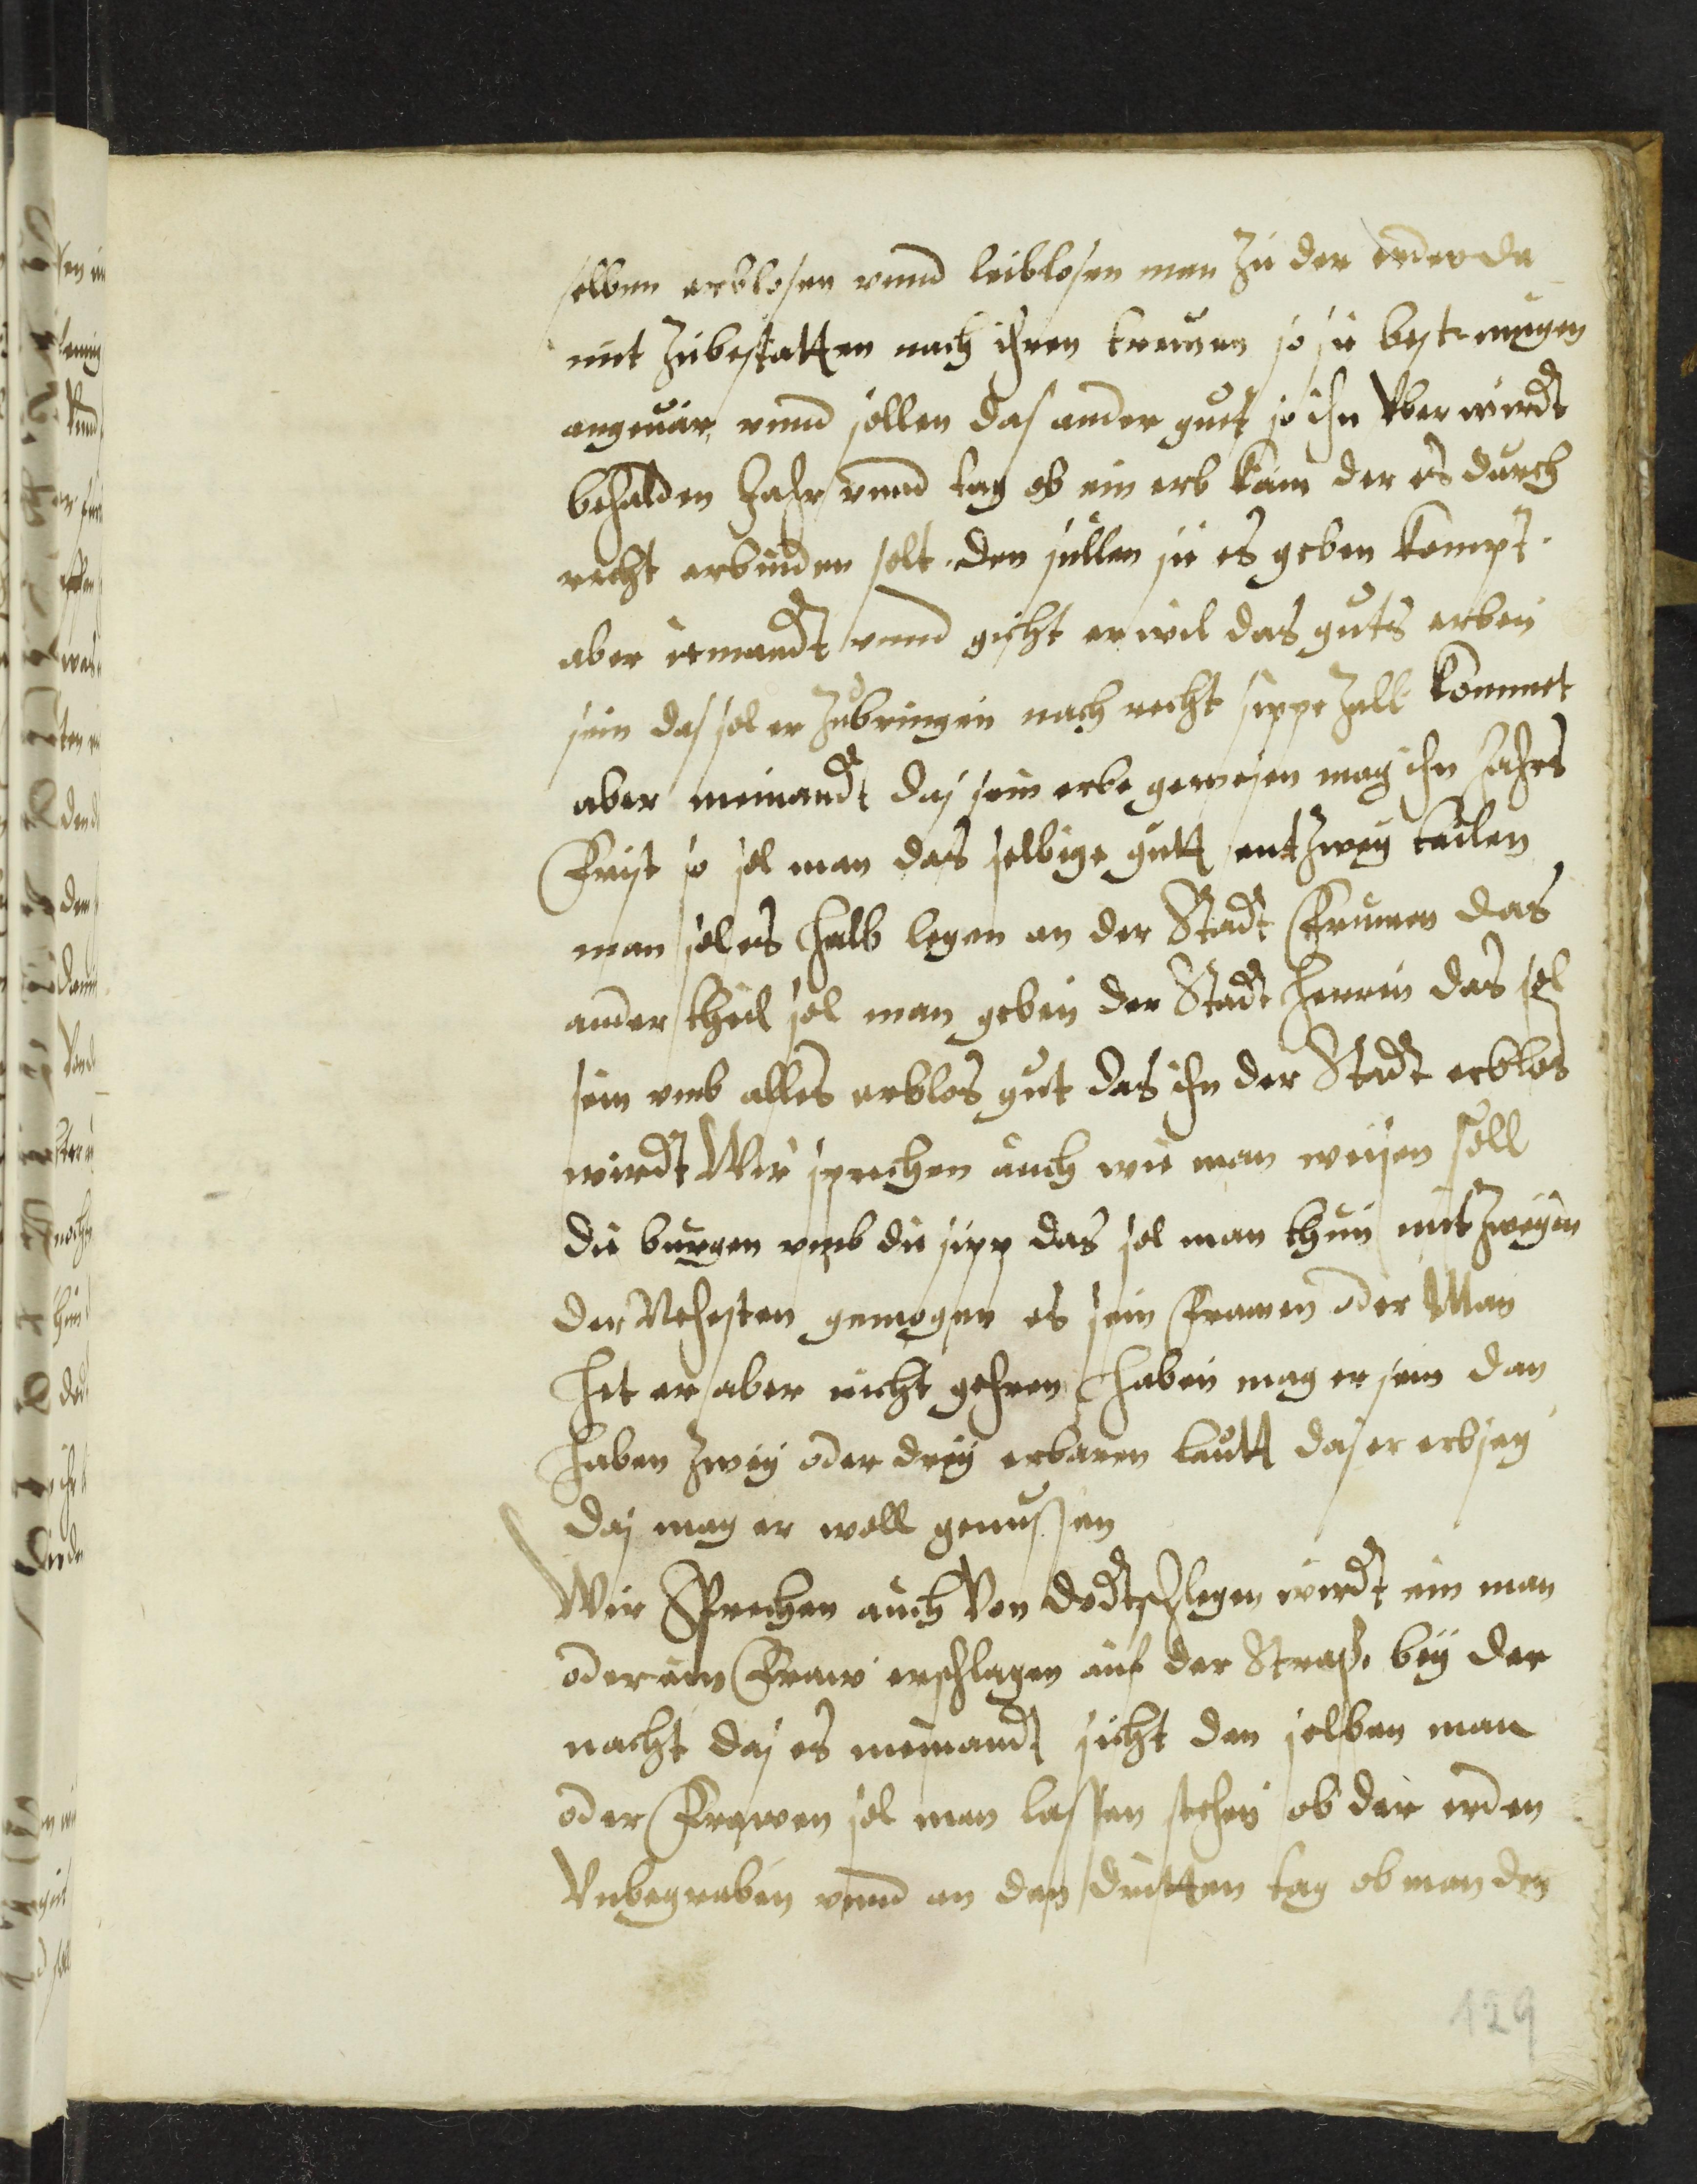 selben erblosen vnnd leiblosen man zu der erden da
mit zubestatten nach ihren treuwen so sie best mugen
angeuär, vnnd sollen das ander gutt so ihn Vber wirdt
behalden Jahr vnnd tag ob ein erb käm der es durch
recht erbinden solt den sullen sie es geben kompt
aber iemandt vnnd gicht er wil das guts erben
sein das sol er zubringen nach recht sippe zall kommet
aber niemandt das sein erbe gewesen mag ihn Jahrs
Frist so sol man das selbige gutt entzwey tailen
man sol es halb legen an der Stadt Frumen das
ander theil sol man geben der Stadt herren das sol
sein vmb alles erblos gut das ihn der Stadt erblos
wirdt Wir sprechen auch wie man weisen soll
die burgen vmb die sipp das sol man thun mit zweyen
der Nehsten gemogen es sein Frawen oder Man
het er aber nicht gehren haben mag er sein dan
haben zwey oder drey erbaren leutt das er erb sey
das mag er woll genussen
Wir Sprechen auch Von dodtschlegen wirdt ein man
oder ein Fraw erschlagen auf der Straß bey der
nacht das es niemandt sicht den selben man
oder Frawen sol man lassen stehen ob der erden
Vnbegraben vnnd an den dritten tag ob man den
129